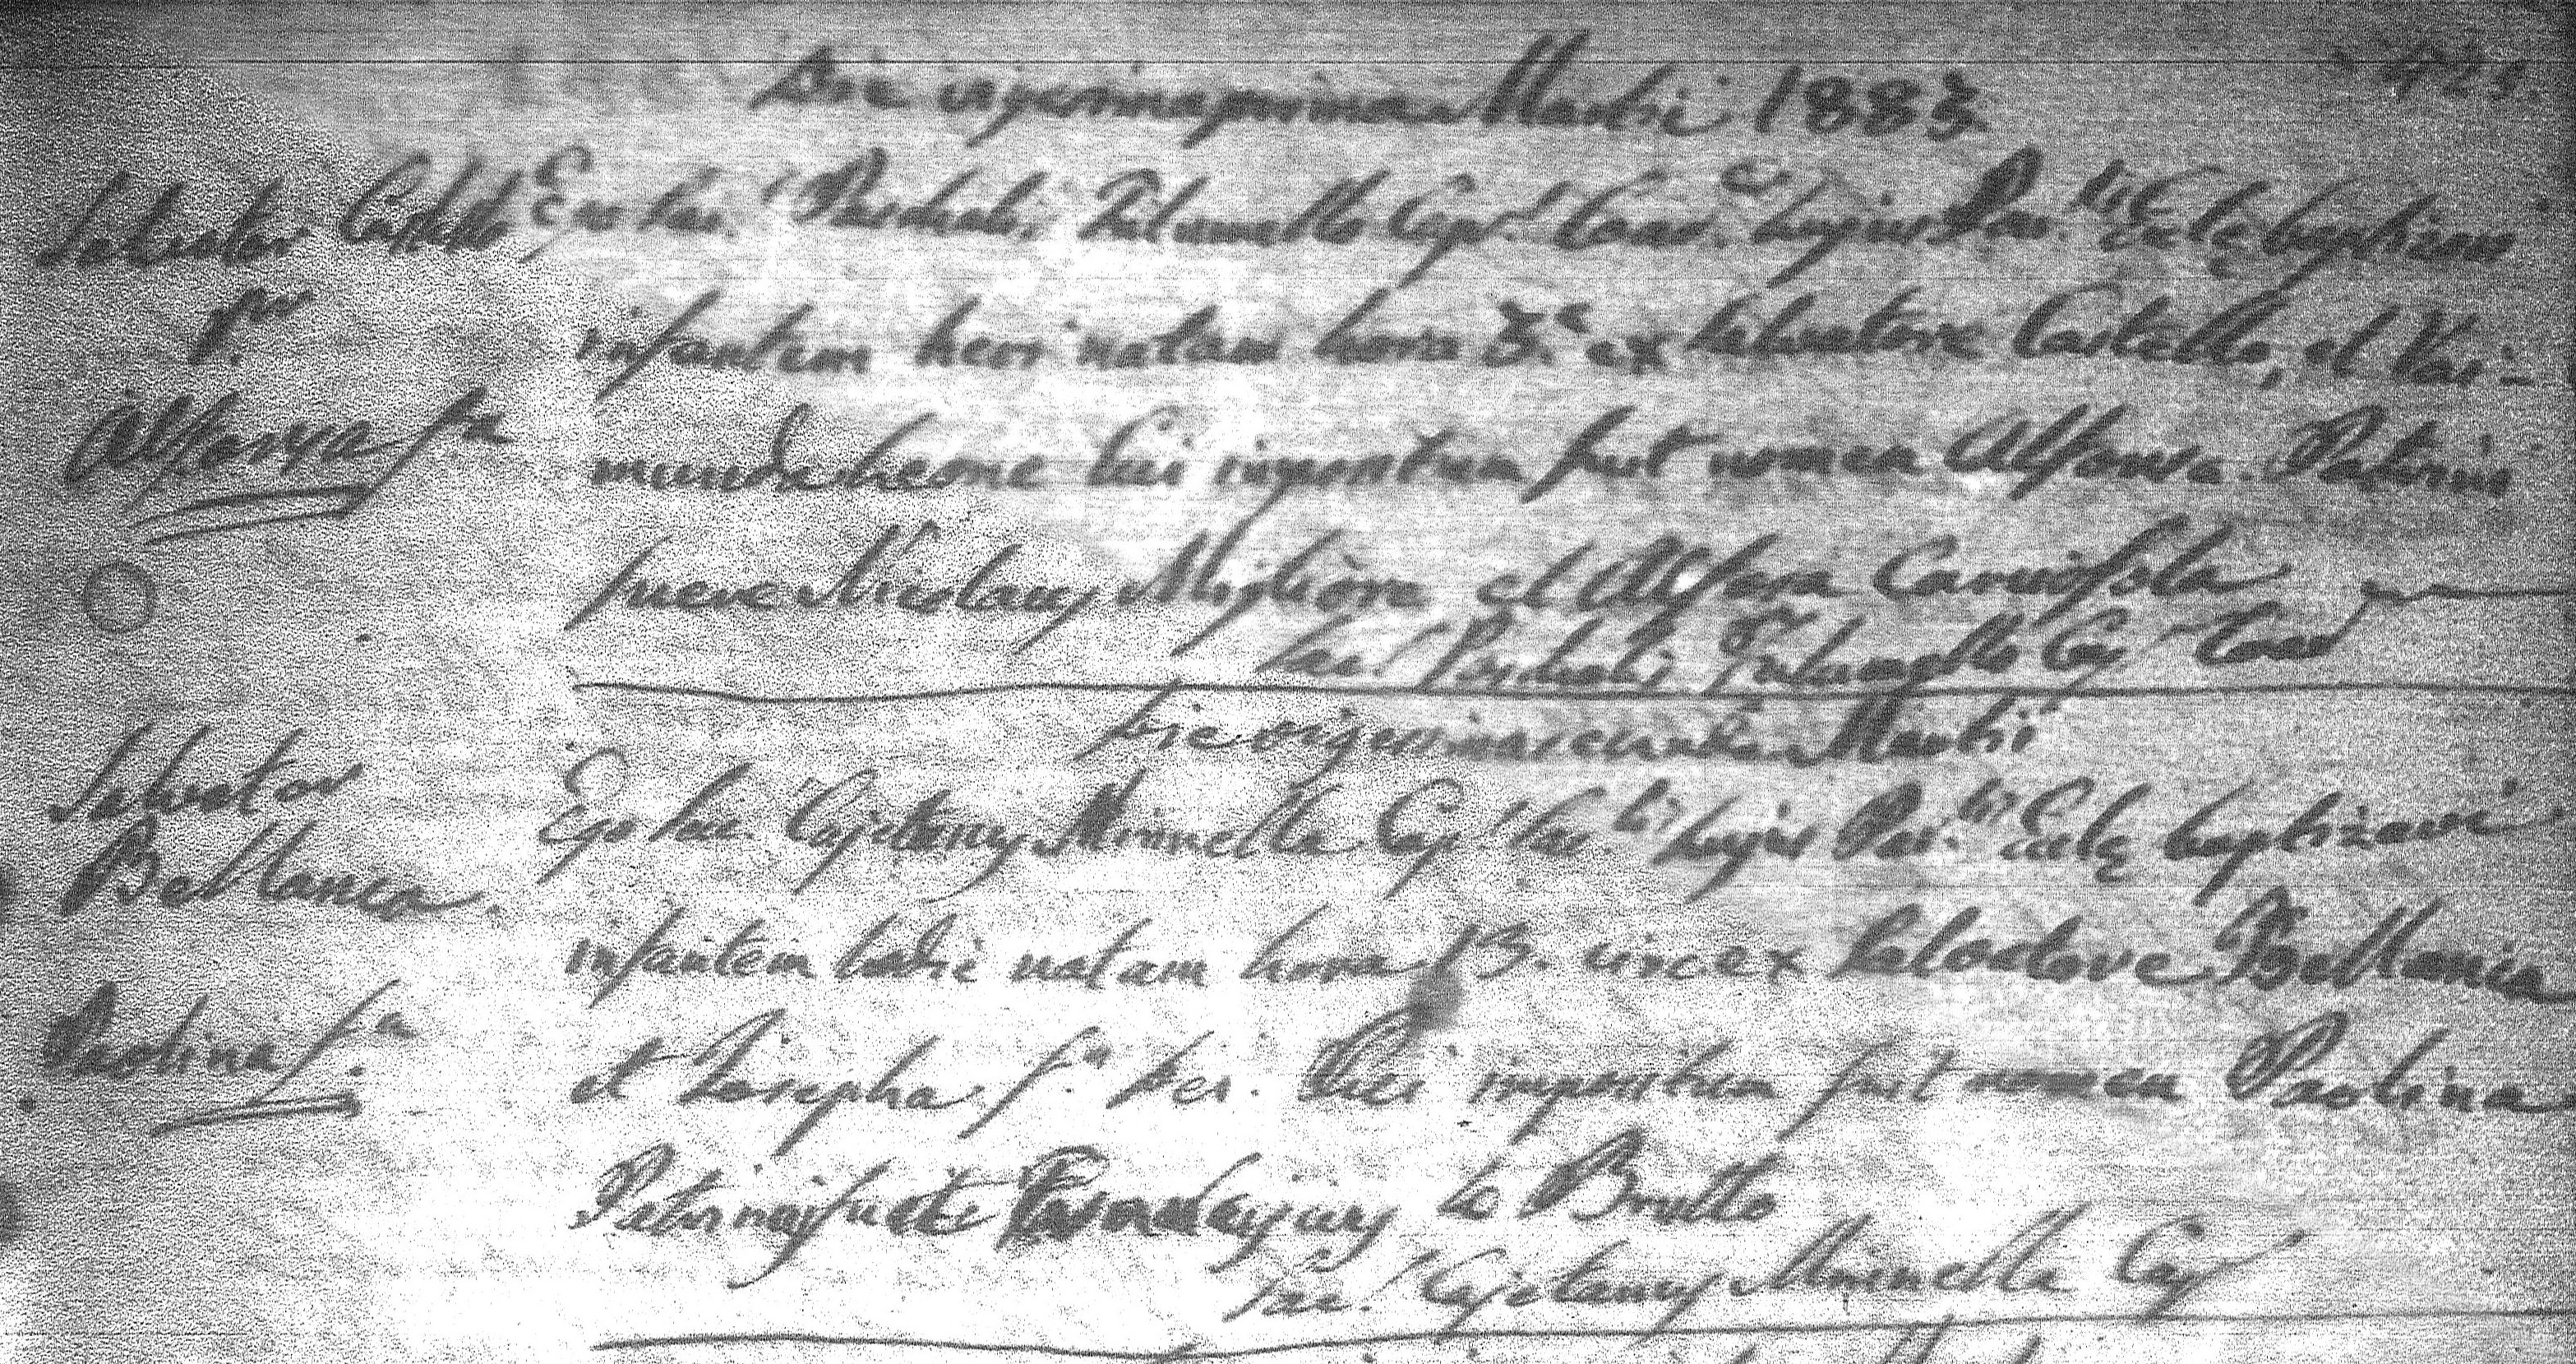 Die vigesimaprima Martii 1883
Salvator Castello Ego Sac. Paschalis Palumello Cap. Coad. hujus Par. Ecclę baptizavi
infantem heri natam hora 3.ª ex Salvatore Castello, et Rai-
munda Leone Cui impositum fuit nomen Alfonsa. Patrini
fuere Nicolaus Migliore et Alfonsa
Sac. Paschalis Cap. Coad
f.
Alfonsa f.a
Die vigesimasecunda Martii
Salvator
Bellanca.
Ego Sac. Cajetanus Minnella Cap. hujus Par. Ecclę baptizavi
infantem hodie natam hora 13. circ. ex Salvatore Bellanca
et Josepha f.a Cui impositum fuit nomen Paolina
Paolina f.a
Patrinus fuit lo Brutto
Sac. Cajetanus Minnella Cap.